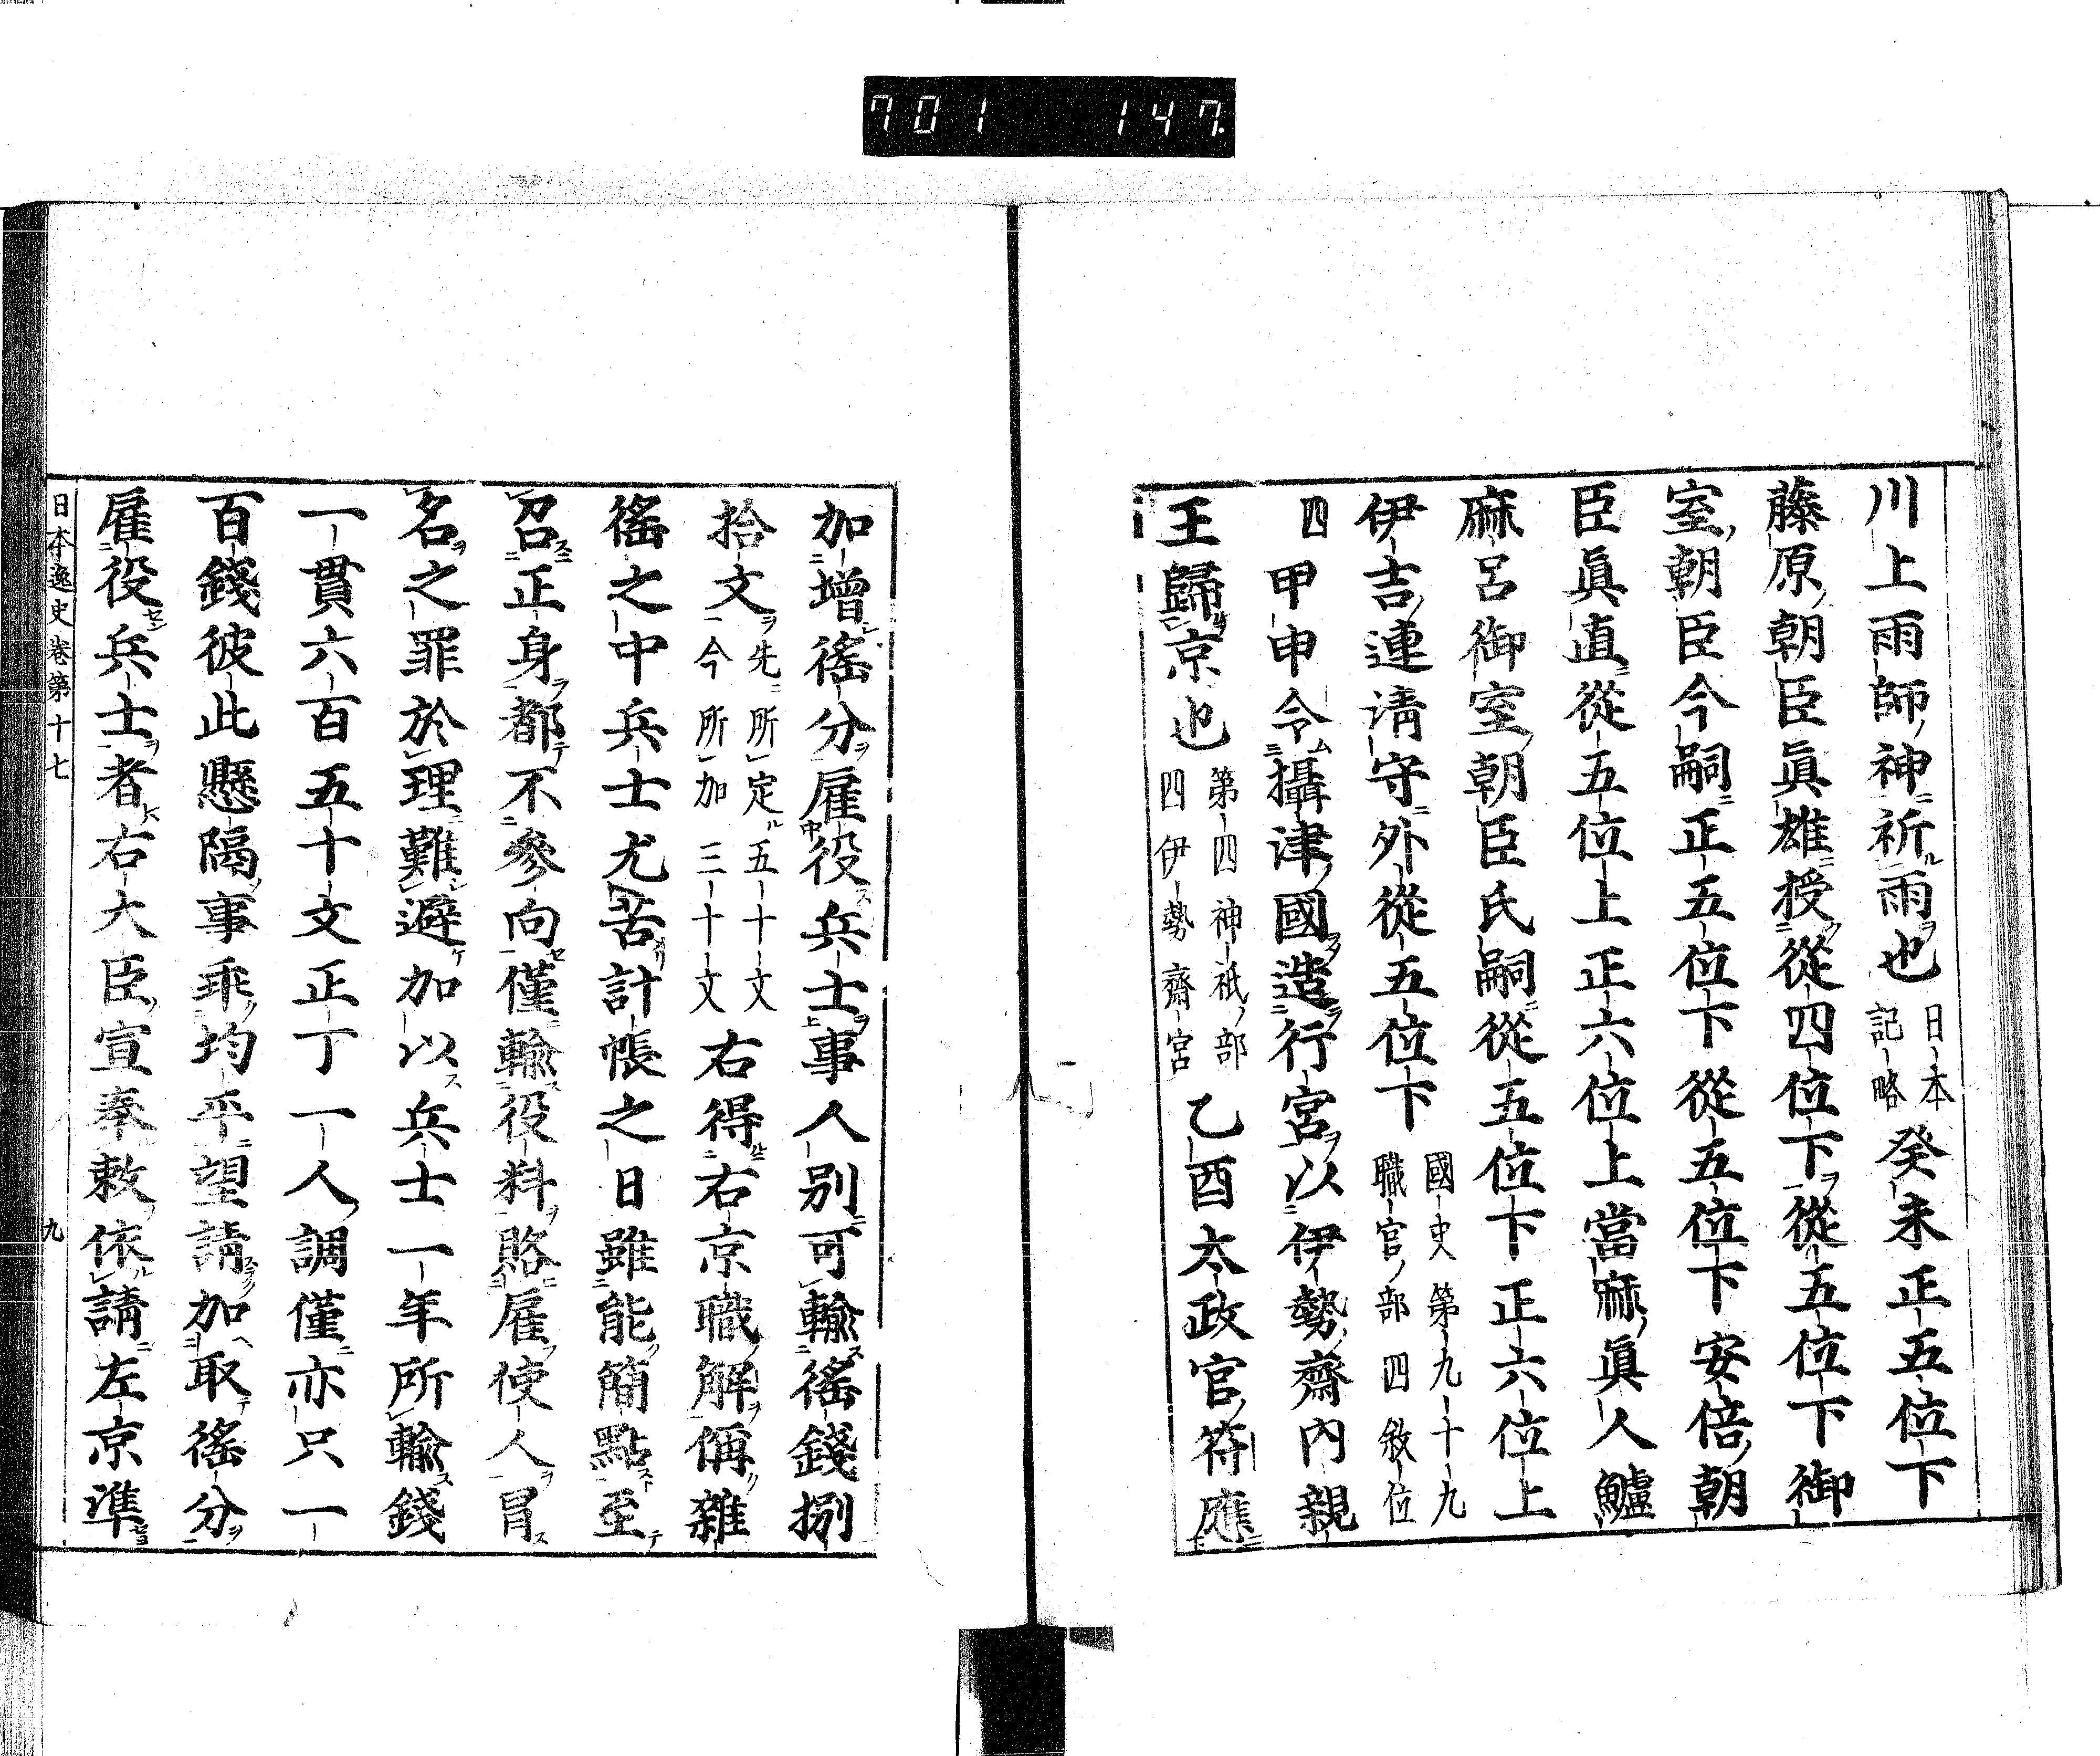 701 147.
川上雨師神祈雨也日本記略癸未正五位下
藤原朝臣眞雄授從四位下從五位下御
室朝臣今嗣正五位下從五位下安倍朝
臣眞直從五位上正六位上當麻眞人鱸
麻呂御室朝臣氏嗣從五位下正六位上
伊吉連淸守外從五位下國史第九十九職官部四敘位
四甲申令攝津國造行宮以伊勢齋內親
王歸京也第四神祇部四伊勢齋宮乙酉太政官符應
加增徭分雇役兵士事人別可輸徭錢捌
拾文先所定五十文今所加三十文右得右京職解偁雜
徭之中兵士尤苦計帳之日雖能簡點至
召正身都不參向僅輸役料賂雇使人冒
名之罪於理難避加以兵士一年所輸錢
一貫六百五十文正丁一人調僅亦只一
百錢彼此懸隔事乖均平望請加取徭分
雇役兵士者右大臣宣奉敕依請左京準
日本逸史卷第十七 九